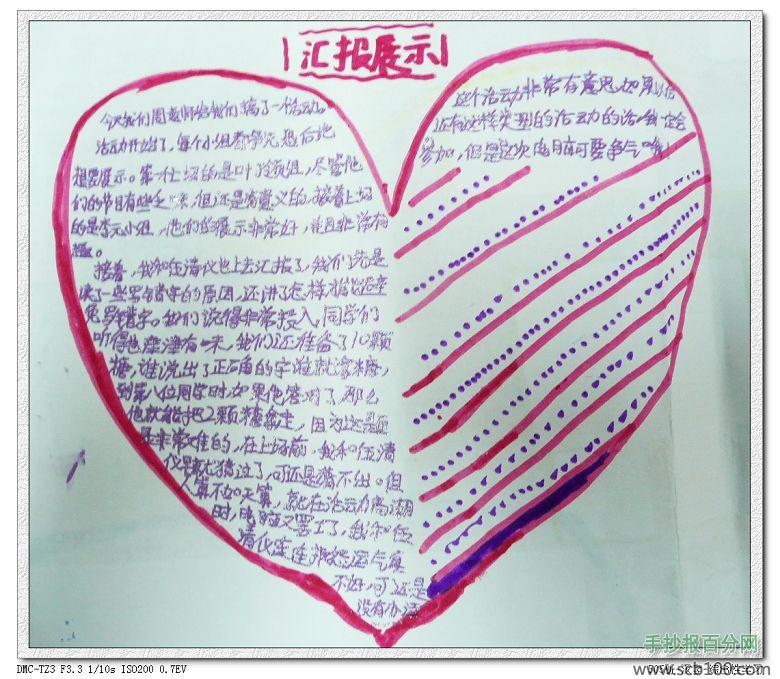 汇报展示
今天我们周老师给我们搞了一个活动。
活动开始了，每个小组都争先恐后地
想要展示。第一上场的是叶 组，尽管他
们的节目有些乏味，但还是有意义的，接着上场
的是李元小组，他们的展示非常好，并且非常有
趣。
接着，我和任清仪也上去汇报了，我们先是
读了一些写错字的原因，还讲了怎样 避
免写错字，我们说得非常投入，同学们
听得也津津有味，我们还准备了10颗
糖，谁说出了正确的字谁就拿糖，
到第八位同学时，如果他答对了，那么
他就能把2颗糖拿走，因为这是题
是非常难的，在上场前，我和任清
仪早就猜过了，可还是猜不出。但
人算不如天算，就在活动高潮
时，电脑又罢工了，我和任
清仪连连抱怨运气真
不好，可还是
没有办法
这个活动非常有意思，如果以后
还有这样类型的活动的话，我一定会
参加，但是这次电脑可要争气哦！
DMC-TZ3 F3.3 1/10s ISO200 0.7EV
手抄报百分网
www.scb100.com